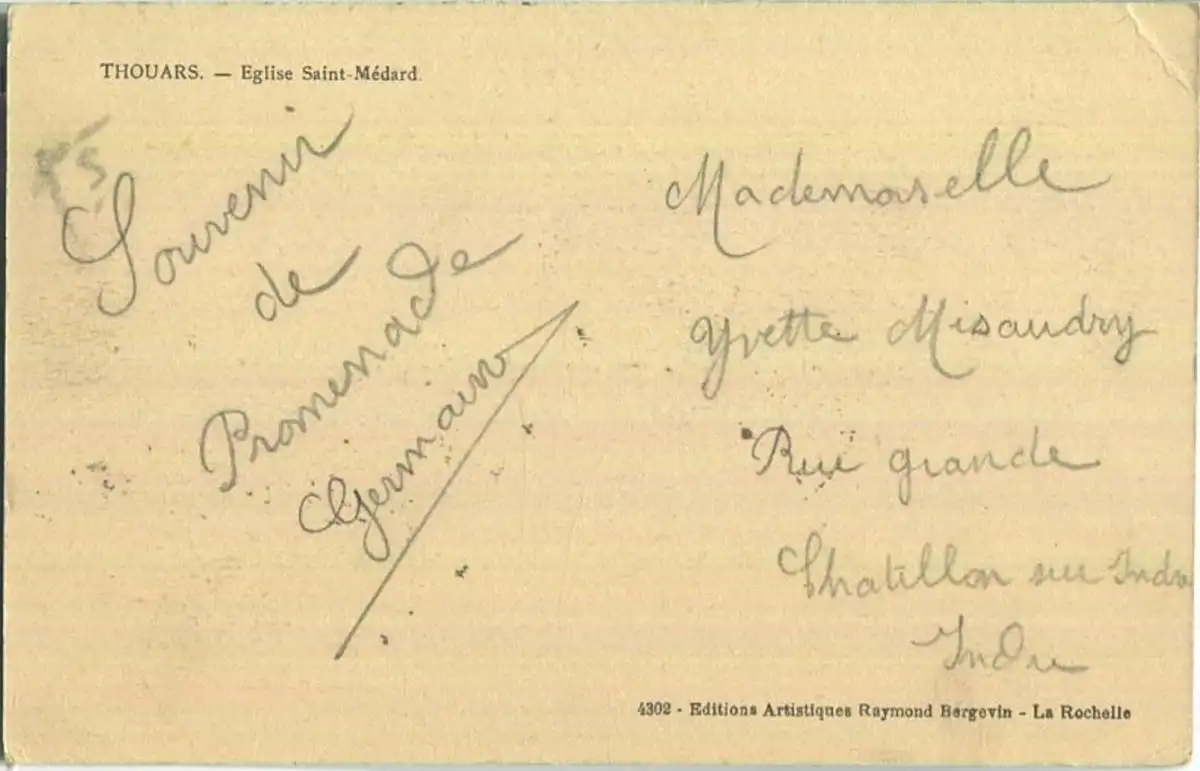 THOUARS. — Eglise Saint-Médard.
Souvenir
de
Promenade
Germain
Mademoselle
Yvette Misaudry
Rue grande
Chatillon sur Indre
Indre
4302 - Editions Artistiques Raymond Bergevin - La Rochelle